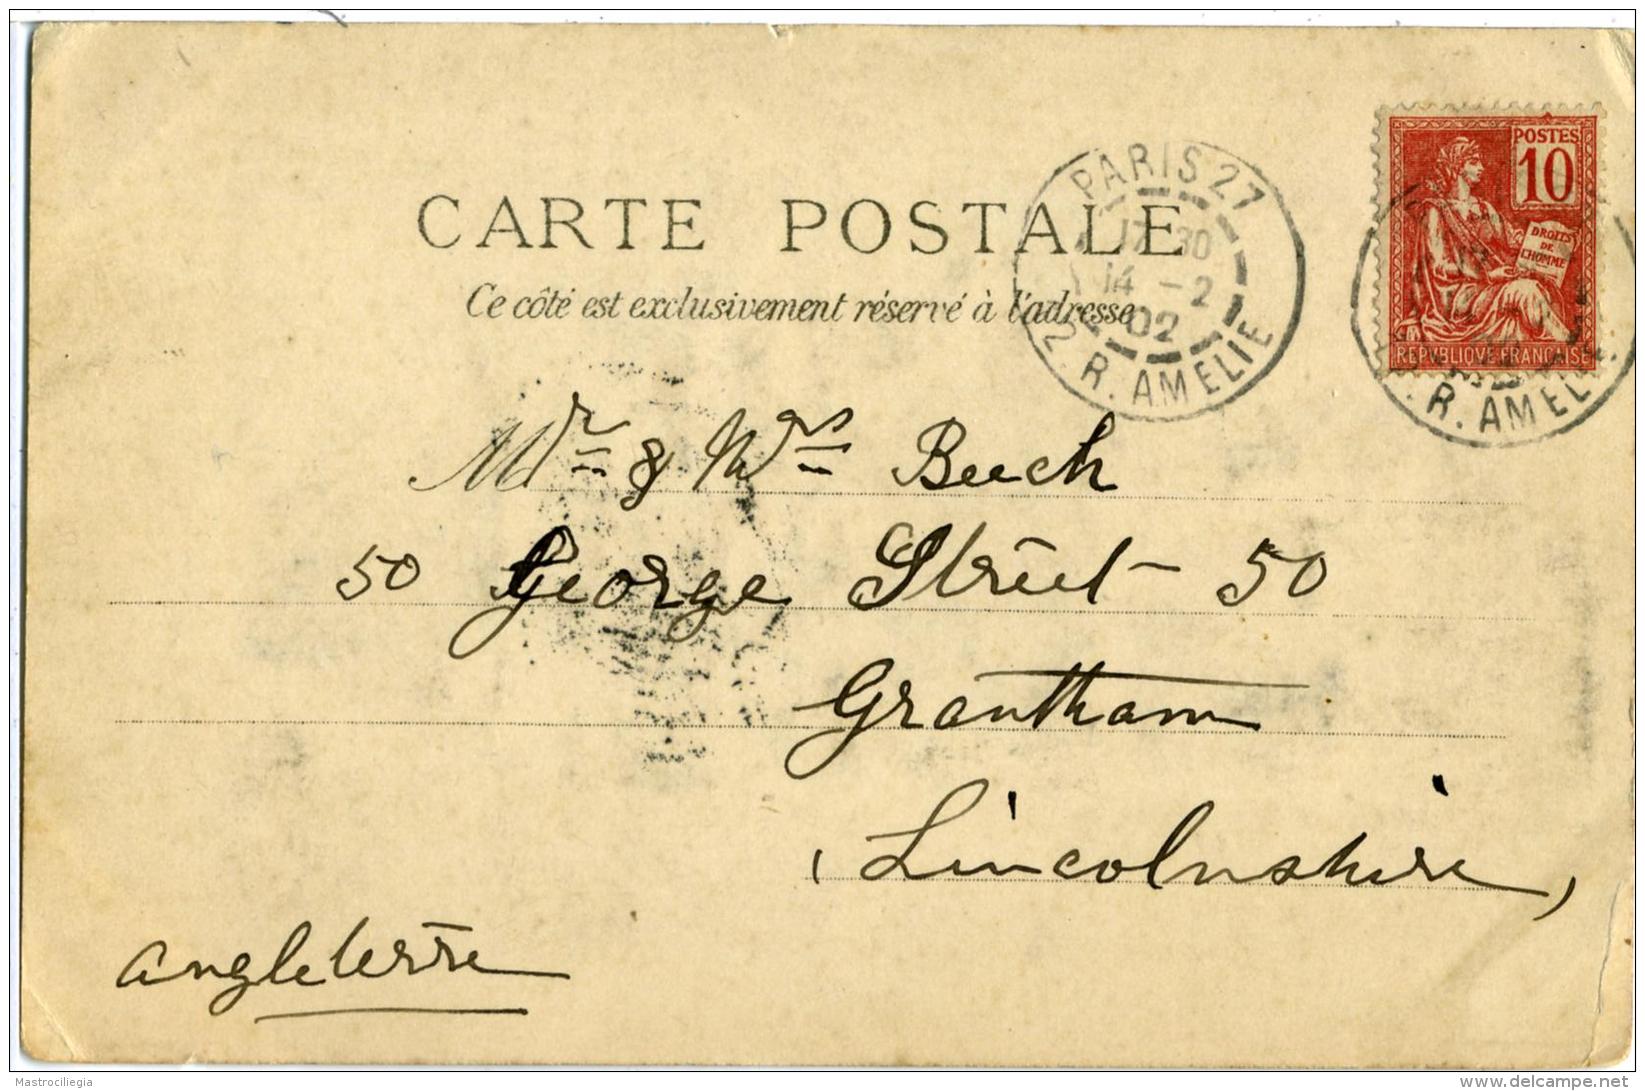 PARIS 27
17 30
14 - 2
02
2. R. AMELIE
POSTES
10
DROITS
DE
L'HOMME
REPVBLIQVE FRANÇAISE
R. AMELIE
CARTE POSTALE
Ce côté est exclusivement réservé à l'adresse
Mr & Mrs Beech
50 George Street - 50
Grantham
(Lincolnshire)
Angleterre
Mastrociliegia
www.delcampe.net